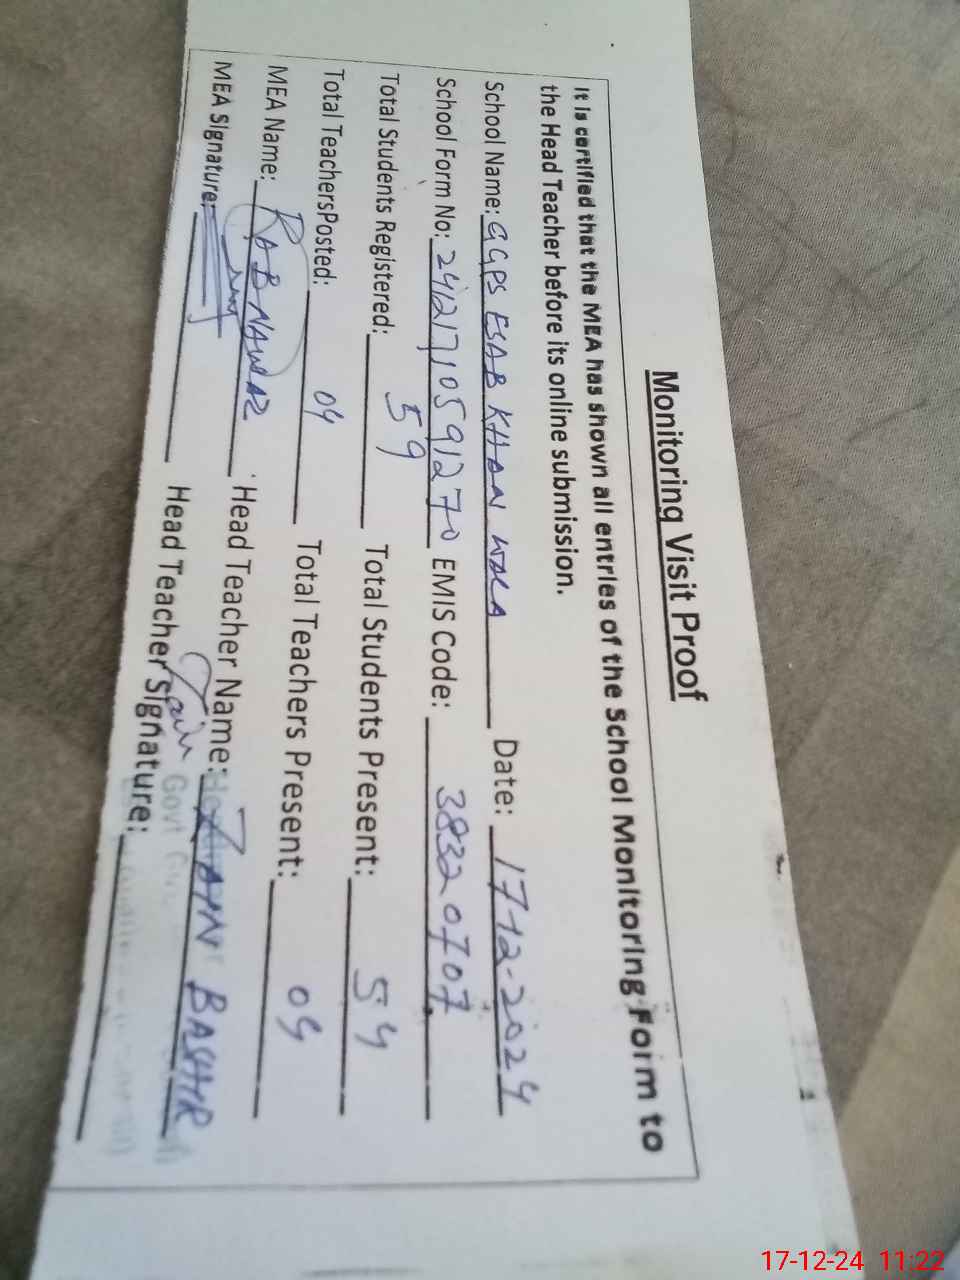 Monitoring Visit Proof
It is certified that the MEA has shown all entries of the School Monitoring Form to
the Head Teacher before its online submission.
School Name: GGPS ESAB KHAN WALA Date: 17-12-2024
School Form No: 24121710591270 EMIS Code: 38320707
Total Students Registered: 59 Total Students Present: 54
Total TeachersPosted: 04 Total Teachers Present: 04
MEA Name: RAB NAWAZ Head Teacher Name: BASHIR
MEA Signature: Head Teacher Signature:
Govt
17-12-24 11:22